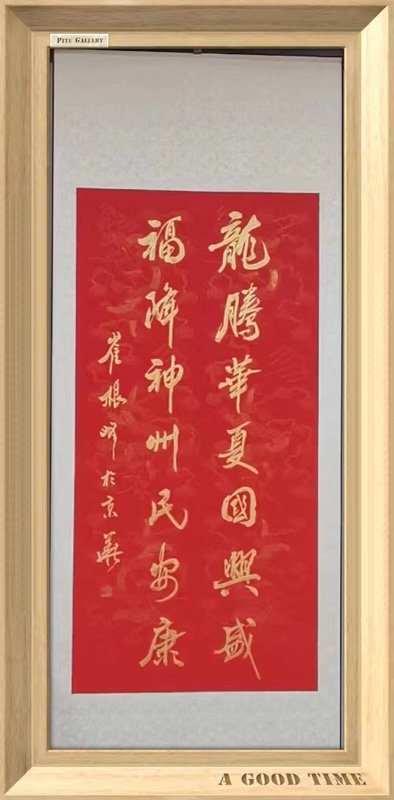 PITU GALLERY
龍騰華夏國興盛
福降神州民安康
崔根辉於京華
A GOOD TIME